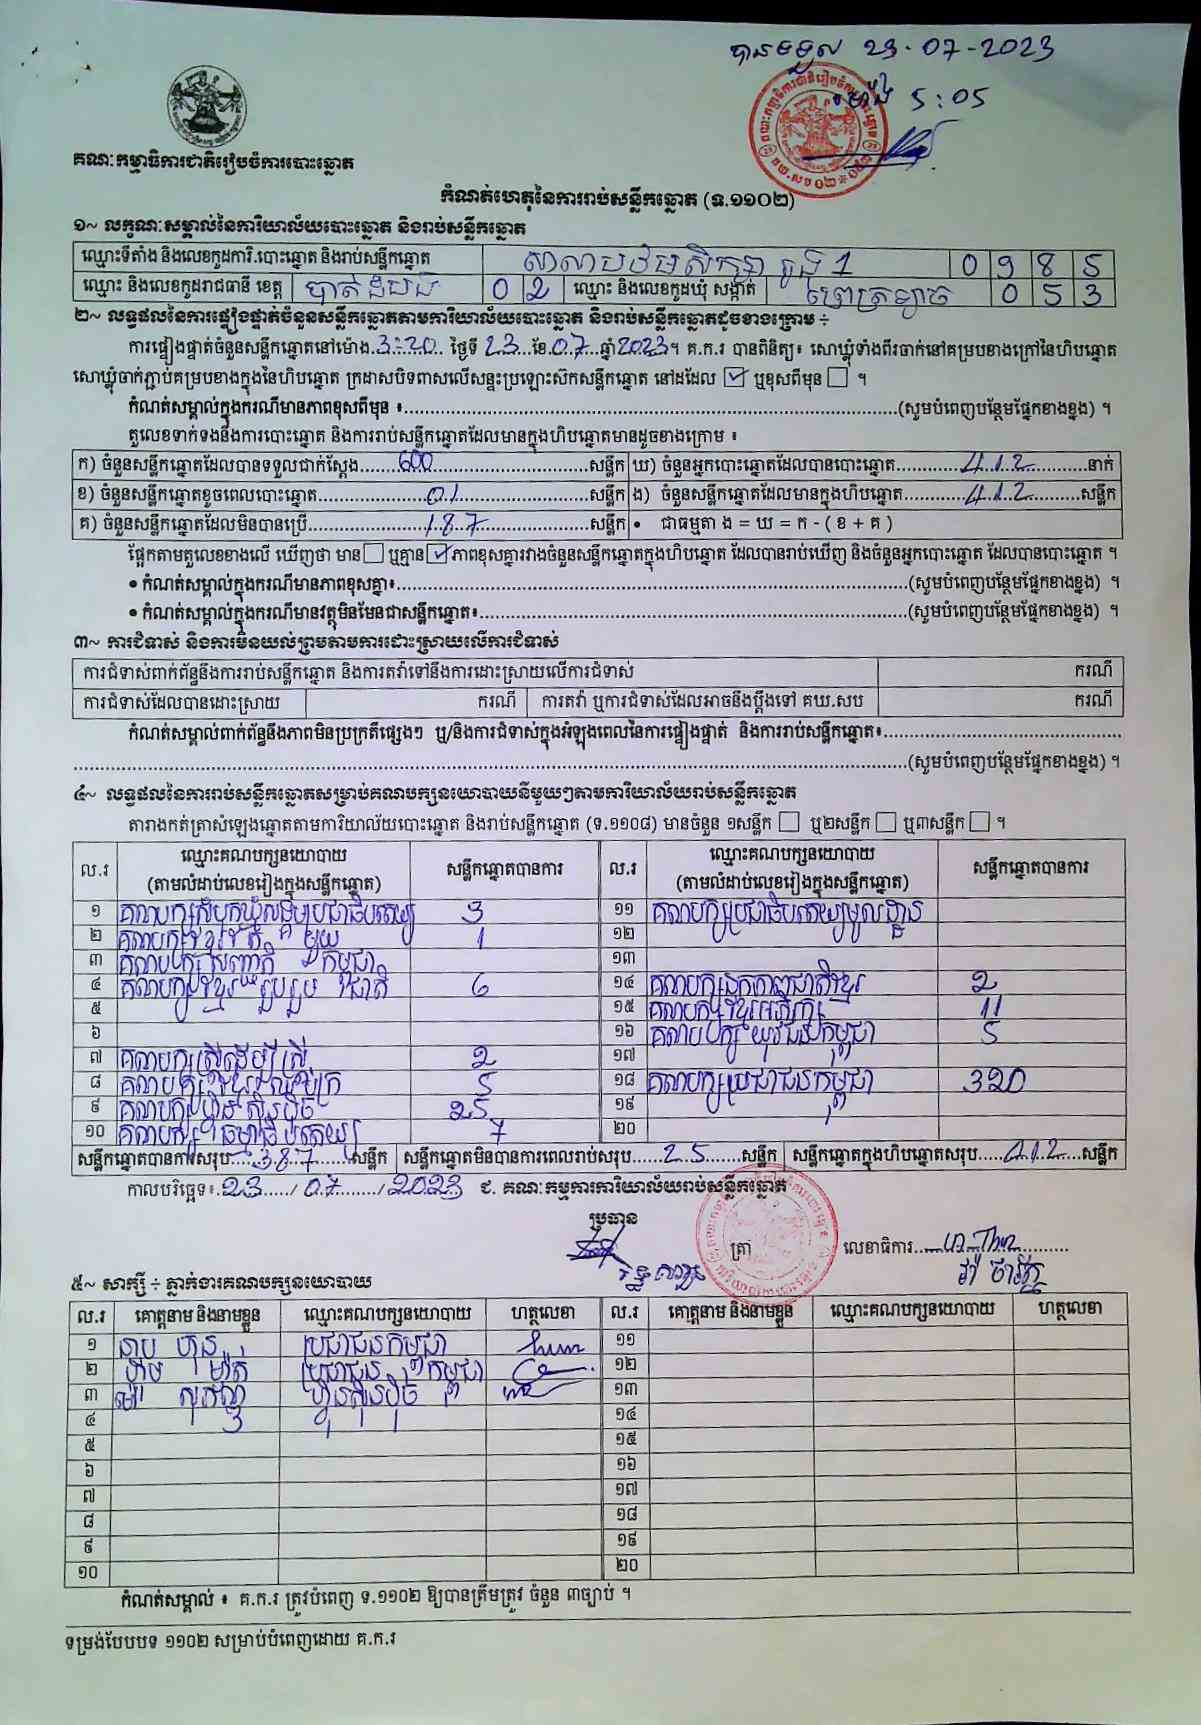 បានទទួល 23-07-2023
ម៉ោង 5:05
គណៈកម្មាធិការជាតិរៀបចំការបោះឆ្នោត
កំណត់ហេតុនៃការរាប់សន្លឹកឆ្នោត (ទ.១១០២)
១~ លក្ខណៈសម្គាល់នៃការិយាល័យបោះឆ្នោត និងរាប់សន្លឹកឆ្នោត
ឈ្មោះទីតាំង និងលេខកូដការិ.បោះឆ្នោត និងរាប់សន្លឹកឆ្នោត សាលាបឋមសិក្សា 1 0 9 8 5
ឈ្មោះ និងលេខកូដរាជធានី ខេត្ត បាត់ដំបង 0 2 ឈ្មោះ និងលេខកូដឃុំ សង្កាត់ 0 5 3
២~ លទ្ធផលនៃការផ្ទៀងផ្ទាត់ចំនួនសន្លឹកឆ្នោតតាមការិយាល័យបោះឆ្នោត និងរាប់សន្លឹកឆ្នោតដូចខាងក្រោម ÷
ការផ្ទៀងផ្ទាត់ចំនួនសន្លឹកឆ្នោតនៅម៉ោង 3:20 ថ្ងៃទី 23 ខែ 07 ឆ្នាំ 2023។ គ.ក.រ បានពិនិត្យ៖ សោឃ្លុំទាំងពីរចាក់នៅគម្របខាងក្រៅនៃហិបឆ្នោត
សោឃ្លុំចាក់ភ្ជាប់គម្របខាងក្នុងនៃហិបឆ្នោត ក្រដាសបិទពាសលើសន្ទះប្រឡោះស៊កសន្លឹកឆ្នោត នៅដដែល ☑ ឬខុសពីមុន ☐ ។
កំណត់សម្គាល់ក្នុងករណីមានភាពខុសពីមុន ៖ (សូមបំពេញបន្ថែមផ្នែកខាងខ្នង) ។
តួលេខទាក់ទងនឹងការបោះឆ្នោត និងការរាប់សន្លឹកឆ្នោតដែលមានក្នុងហិបឆ្នោតមានដូចខាងក្រោម ៖
ក) ចំនួនសន្លឹកឆ្នោតដែលបានទទួលជាក់ស្តែង 600 សន្លឹក ឃ) ចំនួនអ្នកបោះឆ្នោតដែលបានបោះឆ្នោត 412 នាក់
ខ) ចំនួនសន្លឹកឆ្នោតខូចពេលបោះឆ្នោត 01 សន្លឹក ង) ចំនួនសន្លឹកឆ្នោតដែលមានក្នុងហិបឆ្នោត 412 សន្លឹក
គ) ចំនួនសន្លឹកឆ្នោតដែលមិនបានប្រើ 187 សន្លឹក • ជាធម្មតា ង = ឃ = ក - ( ខ + គ )
ផ្អែកតាមតួលេខខាងលើ ឃើញថា មាន ☐ ឬគ្មាន ☑ ភាពខុសគ្នារវាងចំនួនសន្លឹកឆ្នោតក្នុងហិបឆ្នោត ដែលបានរាប់ឃើញ និងចំនួនអ្នកបោះឆ្នោត ដែលបានបោះឆ្នោត ។
• កំណត់សម្គាល់ក្នុងករណីមានភាពខុសគ្នា៖ (សូមបំពេញបន្ថែមផ្នែកខាងខ្នង) ។
• កំណត់សម្គាល់ក្នុងករណីមានវត្ថុមិនមែនជាសន្លឹកឆ្នោត៖ (សូមបំពេញបន្ថែមផ្នែកខាងខ្នង) ។
៣~ ការជំទាស់ និងការមិនយល់ព្រមតាមការដោះស្រាយលើការជំទាស់
ការជំទាស់ពាក់ព័ន្ធនឹងការរាប់សន្លឹកឆ្នោត និងការតវ៉ាទៅនឹងការដោះស្រាយលើការជំទាស់ ករណី
ការជំទាស់ដែលបានដោះស្រាយ ករណី ការតវ៉ា ឬការជំទាស់ដែលអាចនឹងប្តឹងទៅ គឃ.សប ករណី
កំណត់សម្គាល់ពាក់ព័ន្ធនឹងភាពមិនប្រក្រតីផ្សេងៗ ឬ/និងការជំទាស់ក្នុងអំឡុងពេលនៃការផ្ទៀងផ្ទាត់ និងការរាប់សន្លឹកឆ្នោត៖
(សូមបំពេញបន្ថែមផ្នែកខាងខ្នង) ។
៤~ លទ្ធផលនៃការរាប់សន្លឹកឆ្នោតសម្រាប់គណបក្សនយោបាយនីមួយៗតាមការិយាល័យរាប់សន្លឹកឆ្នោត
តារាងកត់ត្រាសំឡេងឆ្នោតតាមការិយាល័យបោះឆ្នោត និងរាប់សន្លឹកឆ្នោត (ទ.១១០៨) មានចំនួន ១សន្លឹក ☐ ឬ២សន្លឹក ☐ ឬ៣សន្លឹក ☐ ។
ល.រ ឈ្មោះគណបក្សនយោបាយ (តាមលំដាប់លេខរៀងក្នុងសន្លឹកឆ្នោត) សន្លឹកឆ្នោតបានការ ល.រ ឈ្មោះគណបក្សនយោបាយ (តាមលំដាប់លេខរៀងក្នុងសន្លឹកឆ្នោត) សន្លឹកឆ្នោតបានការ
១ គណបក្សសំបុកឃ្មុំសង្គមប្រជាធិបតេយ្យ 3 ១១ គណបក្សប្រជាធិបតេយ្យមូលដ្ឋាន
២ គណបក្សខ្មែរតែមួយ 1 ១២
៣ គណបក្សសញ្ជាតិកម្ពុជា ១៣
៤ គណបក្សខ្មែររួបរួមជាតិ 6 ១៤ គណបក្សជាតិខ្មែរ 2
៥ ១៥ គណបក្សខ្មែរអភិរក្ស 11
៦ ១៦ គណបក្សយុវជនកម្ពុជា 5
៧ គណបក្សស្រីដើម្បីស្រី 2 ១៧
៨ គណបក្ស 5 ១៨ គណបក្សប្រជាជនកម្ពុជា 320
៩ គណបក្សហ៊្វុនស៊ិនប៉ិច 25 ១៩
១០ គណបក្សធម្មាធិបតេយ្យ 7 ២០
សន្លឹកឆ្នោតបានការសរុប 387 សន្លឹក សន្លឹកឆ្នោតមិនបានការពេលរាប់សរុប 25 សន្លឹក សន្លឹកឆ្នោតក្នុងហិបឆ្នោតសរុប 412 សន្លឹក
កាលបរិច្ឆេទ៖ 23/07/2023 ជ. គណៈកម្មការការិយាល័យរាប់សន្លឹកឆ្នោត
ប្រធាន
ត្រា លេខាធិការ
៥~ សាក្សី ÷ ភ្នាក់ងារគណបក្សនយោបាយ
ល.រ គោត្តនាម និងនាមខ្លួន ឈ្មោះគណបក្សនយោបាយ ហត្ថលេខា ល.រ គោត្តនាម និងនាមខ្លួន ឈ្មោះគណបក្សនយោបាយ ហត្ថលេខា
១ ប្រជាជនកម្ពុជា ១១
២ ប្រជាជនកម្ពុជា ១២
៣ ហ៊្វុនស៊ិនប៉ិច ១៣
៤ ១៤
៥ ១៥
៦ ១៦
៧ ១៧
៨ ១៨
៩ ១៩
១០ ២០
កំណត់សម្គាល់ ៖ គ.ក.រ ត្រូវបំពេញ ទ.១១០២ ឱ្យបានត្រឹមត្រូវ ចំនួន ៣ច្បាប់ ។
ទម្រង់បែបបទ ១១០២ សម្រាប់បំពេញដោយ គ.ក.រ